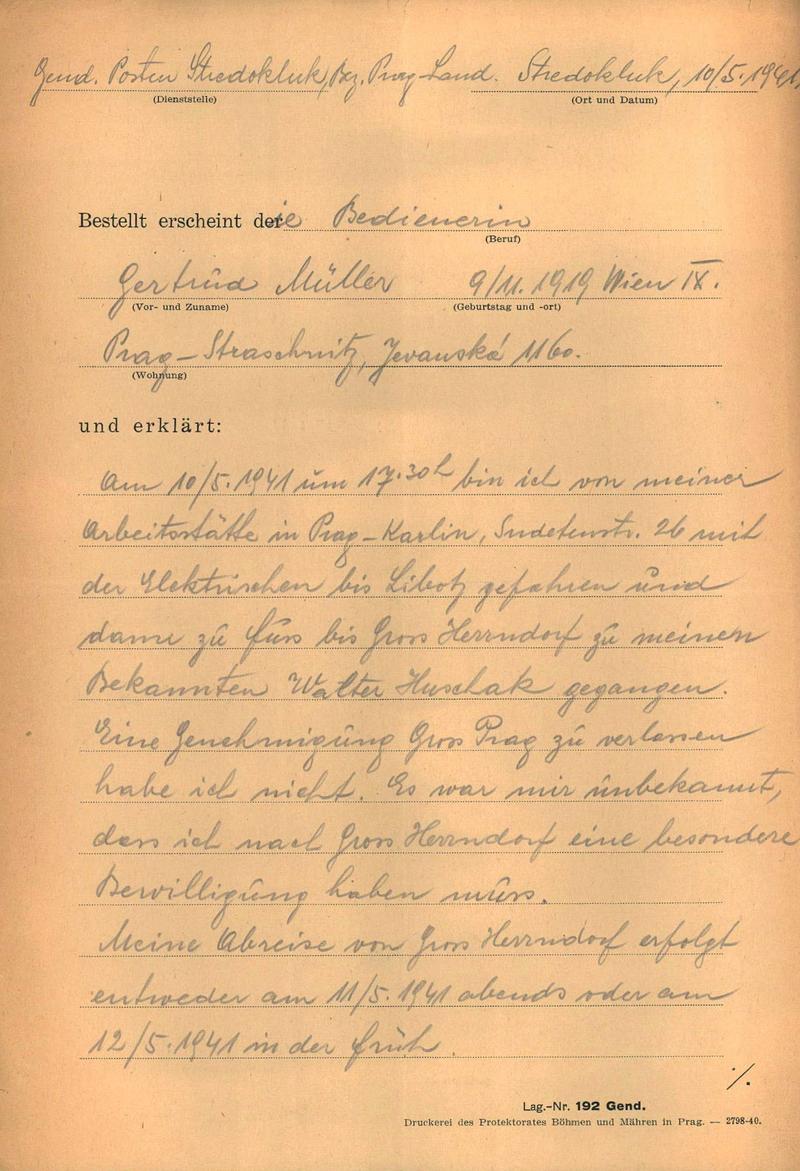 Gend. Posten Stredokluk, Bez. Prag-Land. Stredokluk, 10/5. 1941,
(Dienststelle) (Ort und Datum)
Bestellt erscheint die Bedienerin
(Beruf)
Gertrud Müller 9/11. 1919 Wien IX.
(Vor- und Zuname) (Geburtstag und -ort)
Prag – Straschnitz, Jevanská 1160.
(Wohnung)
und erklärt:
Am 10/5. 1941 um 17.30h bin ich von meiner
Arbeitsstätte in Prag – Karlin, Sudetenstr. 26 mit
der Elektrischen bis Libotz gefahren und
dann zu fuss bis Gross Herrndorf zu meinen
Bekannten Walter Huschak gegangen.
Eine Genehmigung Gross Prag zu verlassen
habe ich nicht. Es war mir unbekannt,
dass ich nach Gross Herrndorf eine besondere
Bewilligung haben muss.
Meine Abreise von Gross Herrndorf erfolgt
entweder am 11/5. 1941 abends oder am
12/5. 1941 in der früh.
./.
Lag.-Nr. 192 Gend.
Druckerei des Protektorates Böhmen und Mähren in Prag. — 2798-40.